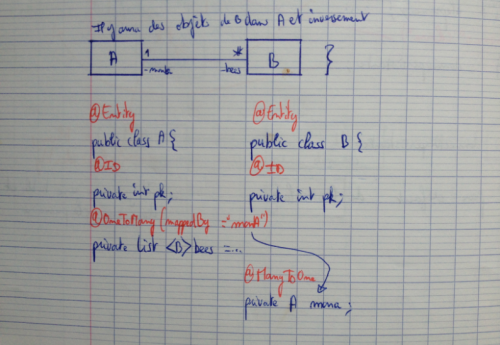 Il y aura des objets de B dans A et inversement
A 1 * B }
- mona - bees
@Entity @Entity
public class A { public class B {
@ID @ID
private int pk; private int pk;
@OneToMany (mappedBy = "monA")
private list <B> bees = ...
@ManyToOne
private A mona;